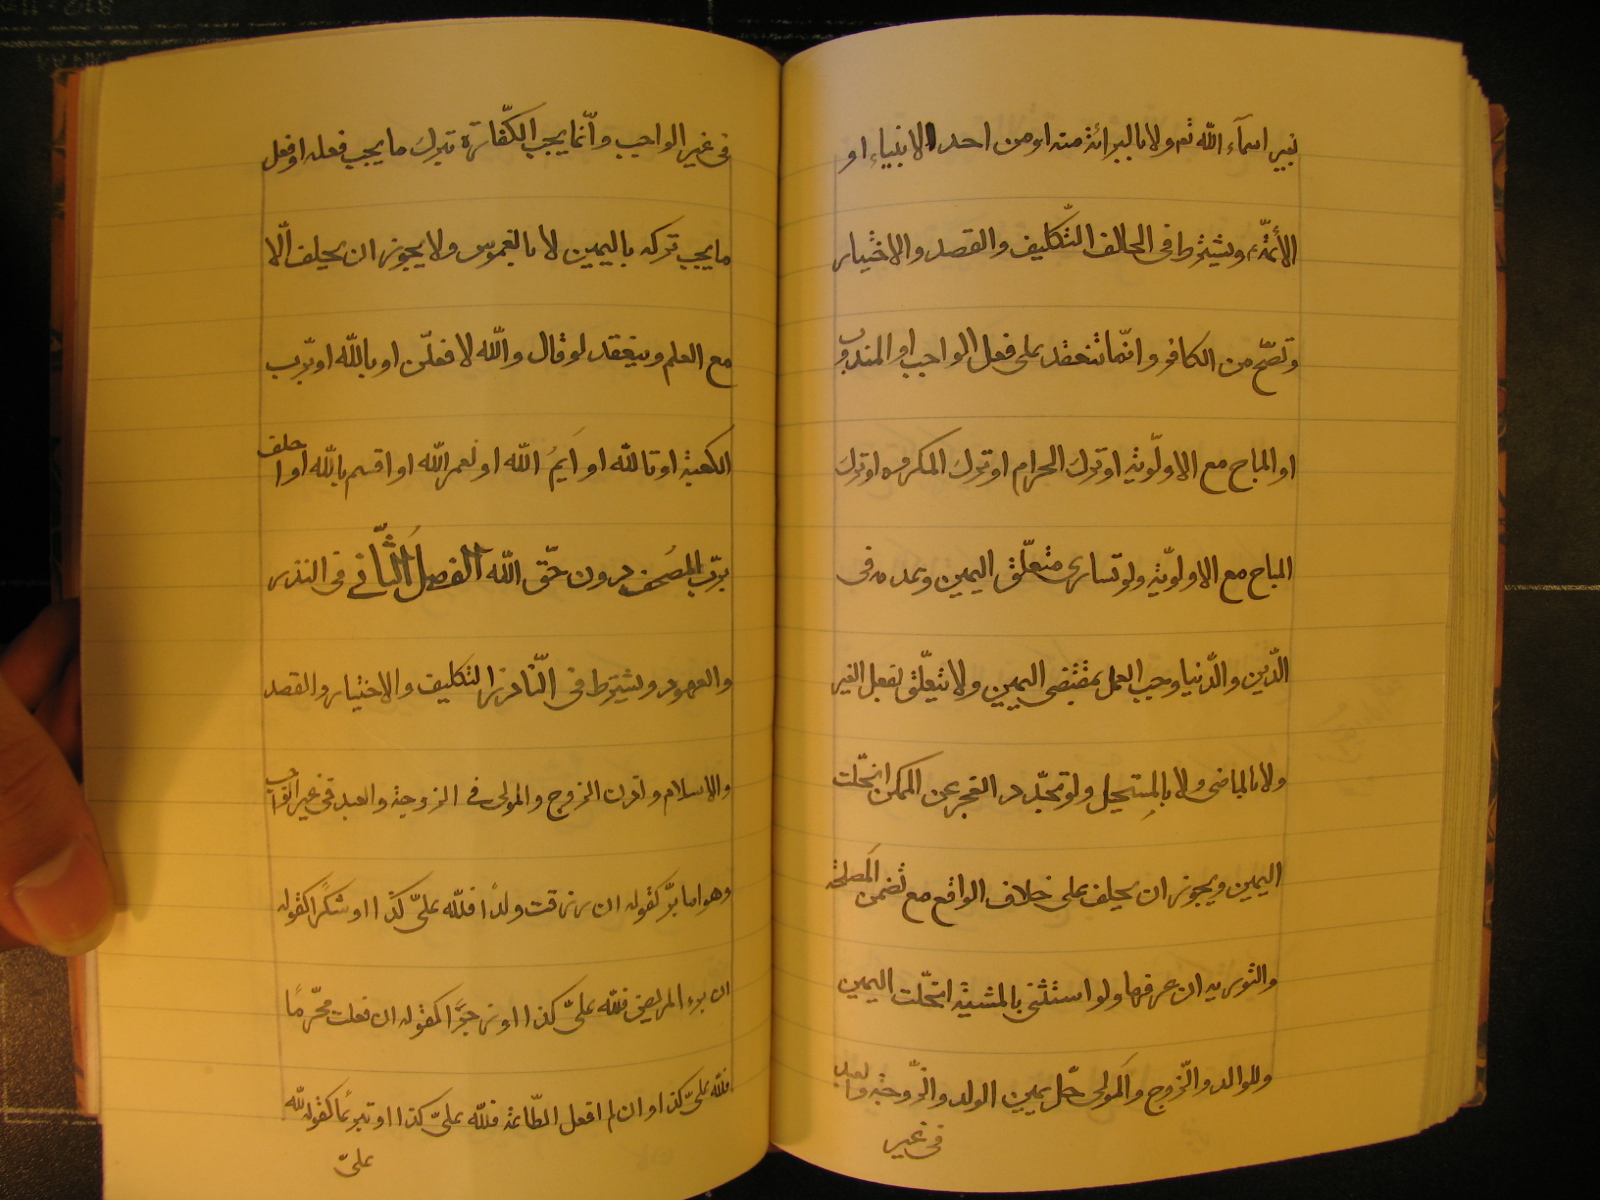 بغير اسمآء الله تع ولا بالبرائة منه او من احد الانبياء او
الأئمّة ع ويشترط فى الحالف التّكليف والقصد والاختيار
وتصّح من الكافر وانّما تنعقد على فعل الواجب او المندوب
او المباح مع الاولّوية او ترك الحرام او ترك المكروه او ترك
المباح مع الاولويّة ولو تساوى متعلّق اليمين وعدمه فى
الدّين والدّنيا وجب العمل بمقتضى اليمين ولا تتعلّق بفعل الغير
ولا بالماضى ولا بالمستحيل ولو تجّدد العجز عن الممكن انحّلت
اليمين ويجوز ان يحلف على خلاف الواقع مع تضمن المصلحة
والتورية ان عرفها ولو استثنى بالمشية انحّلت اليمين
وللوالد والّزوج والمولى حّل يمين الولد والزّوجة والعبد
فى غير
فى غير الواجب وانّما يجب الكفّارة بترك ما يجب فعله او فعل
ما يجب تركه باليمين لا بالغموس ولا يجوز ان يحلف الّا
مع العلم وينعقد لو قال والله لافعلّن او بالله او بّرب
الكعبة او تالله او ايمُ الله او لعمر الله او اقسم بالله او احلف
برّب المصحف دون حّق الله الفصل الثّانى فى النذر
والعهود ويشترط فى النّاذر التكليف والاختيار والقصد
والاسلام واذن الزوج والمولى فى الزوجة والعبد فى غير الواجب
وهو اما برّ كقوله ان رزقت ولدًا فلله علىّ كذا او شكرًا كقوله
ان برء المريض فلله علىّ كذا او زجرًا كقوله ان فعلت محّرمًا
فلله علىّ كذا او ان لم افعل الطّاعة فلله علىّ كذا او تبرعًا كقوله لله
علىّ